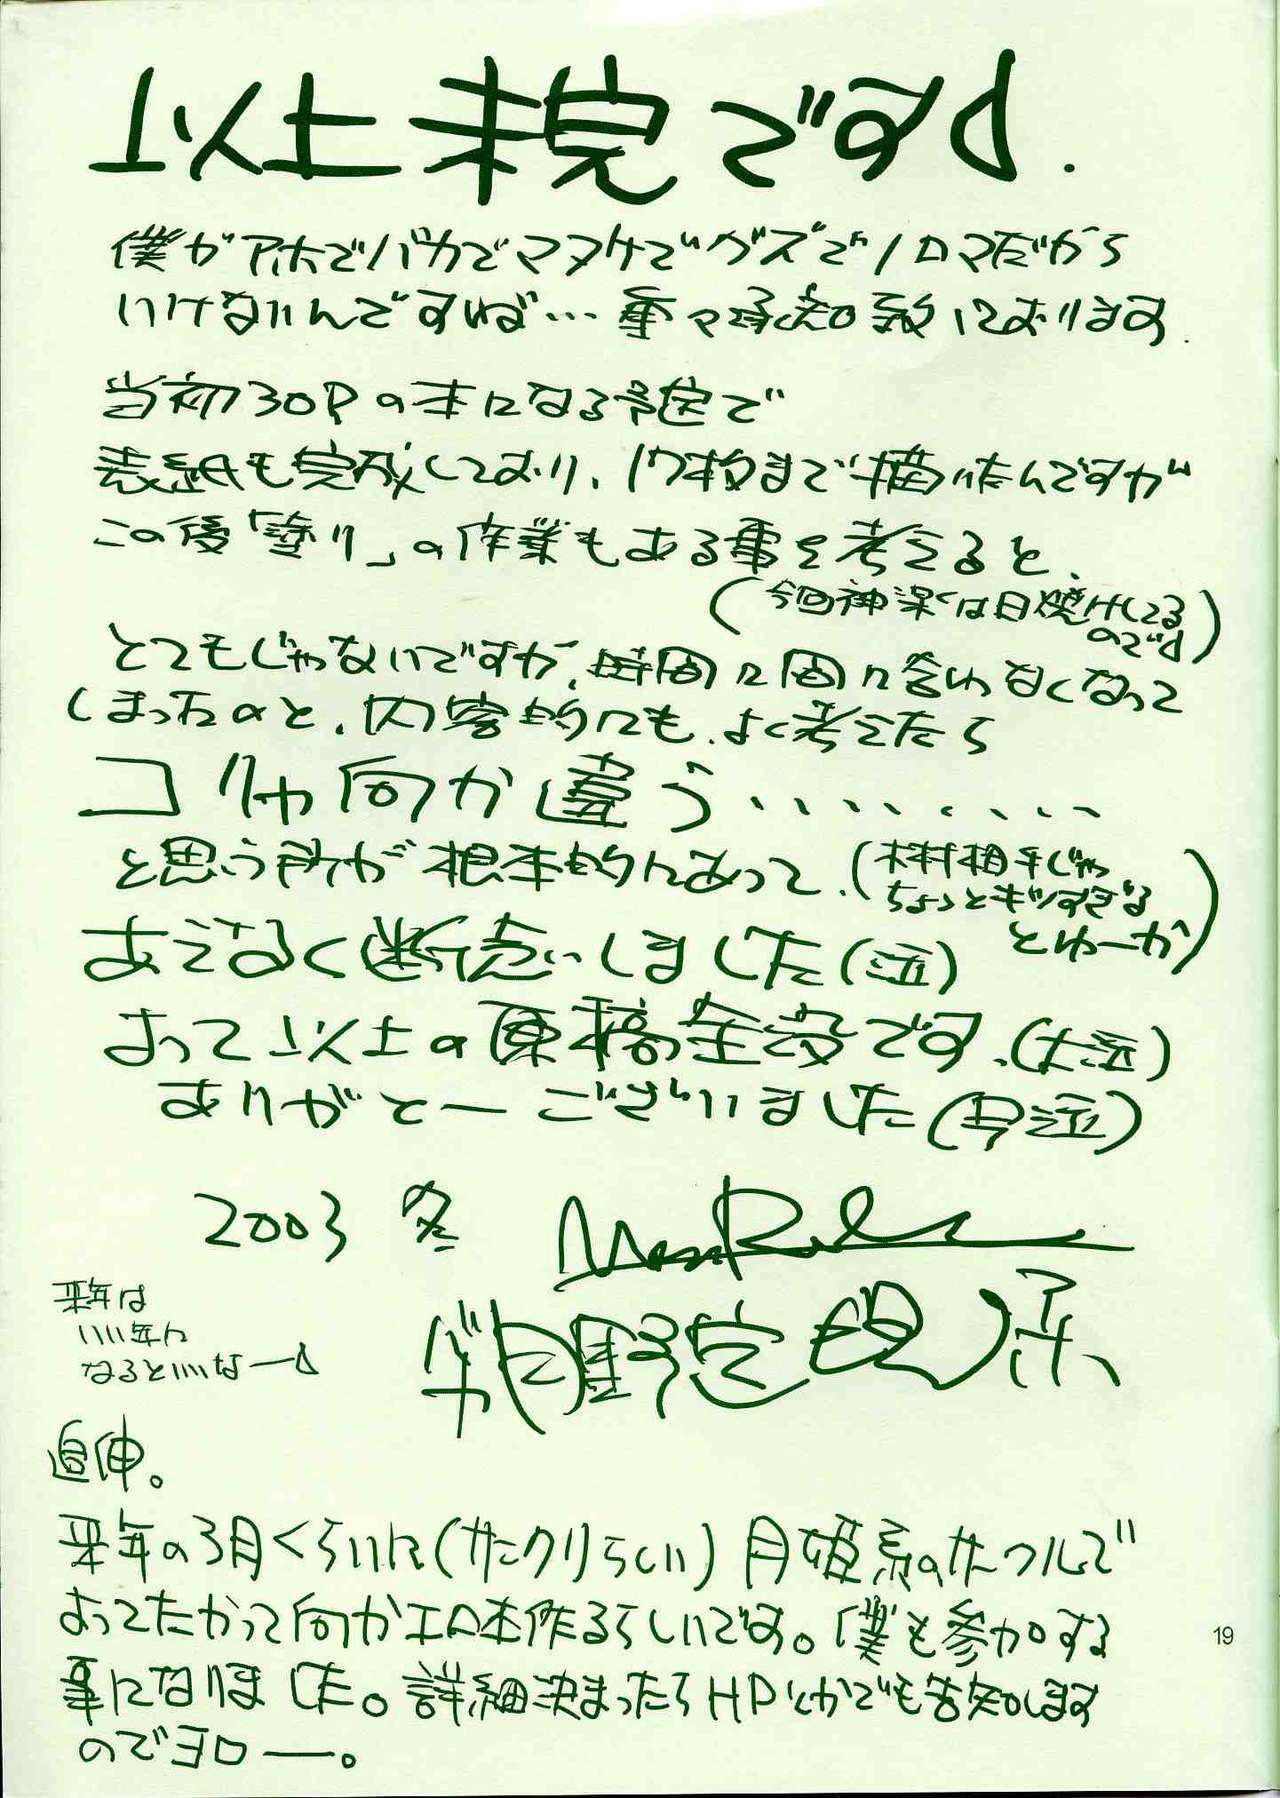 以上未完ですd.
僕がアホでバカでマヌケでグズでノロマだから
いけないんですねば…重々承知致しております.
当初30Pの本になる予定で
表紙も完成しており、17枚まで描いたんですが
この後「塗り」の作業もある事を考えると、
(今回神楽は日焼けしてる
のでd)
とてもじゃないですが、時間に間に合わなくなって
しまったのと、内容的にも、よく考えたら
コリャ何か違う・・・・・・・・
と思う所が根本的にあって、(木村相手じゃ
ちょっとキツすぎる
とゆーか)
あえなく断念しました(泣)
よって以上の原稿全没です、(大泣)
ありがとーございました(号泣)
2003 冬
来年は
いい年に
なるといいなーd
追伸。
来年の3月くらいに(サンクリらしい)月姫系のサークルで
よってたかって何かエロ本作るらしいです。僕も参加する
事になりました。詳細決まったらHPとかでも告知します
のでヨロー。
19